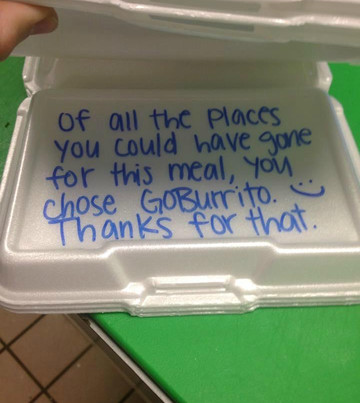 Of all the places
you could have gone
for this meal, you
chose GoBurrito. :)
Thanks for that.